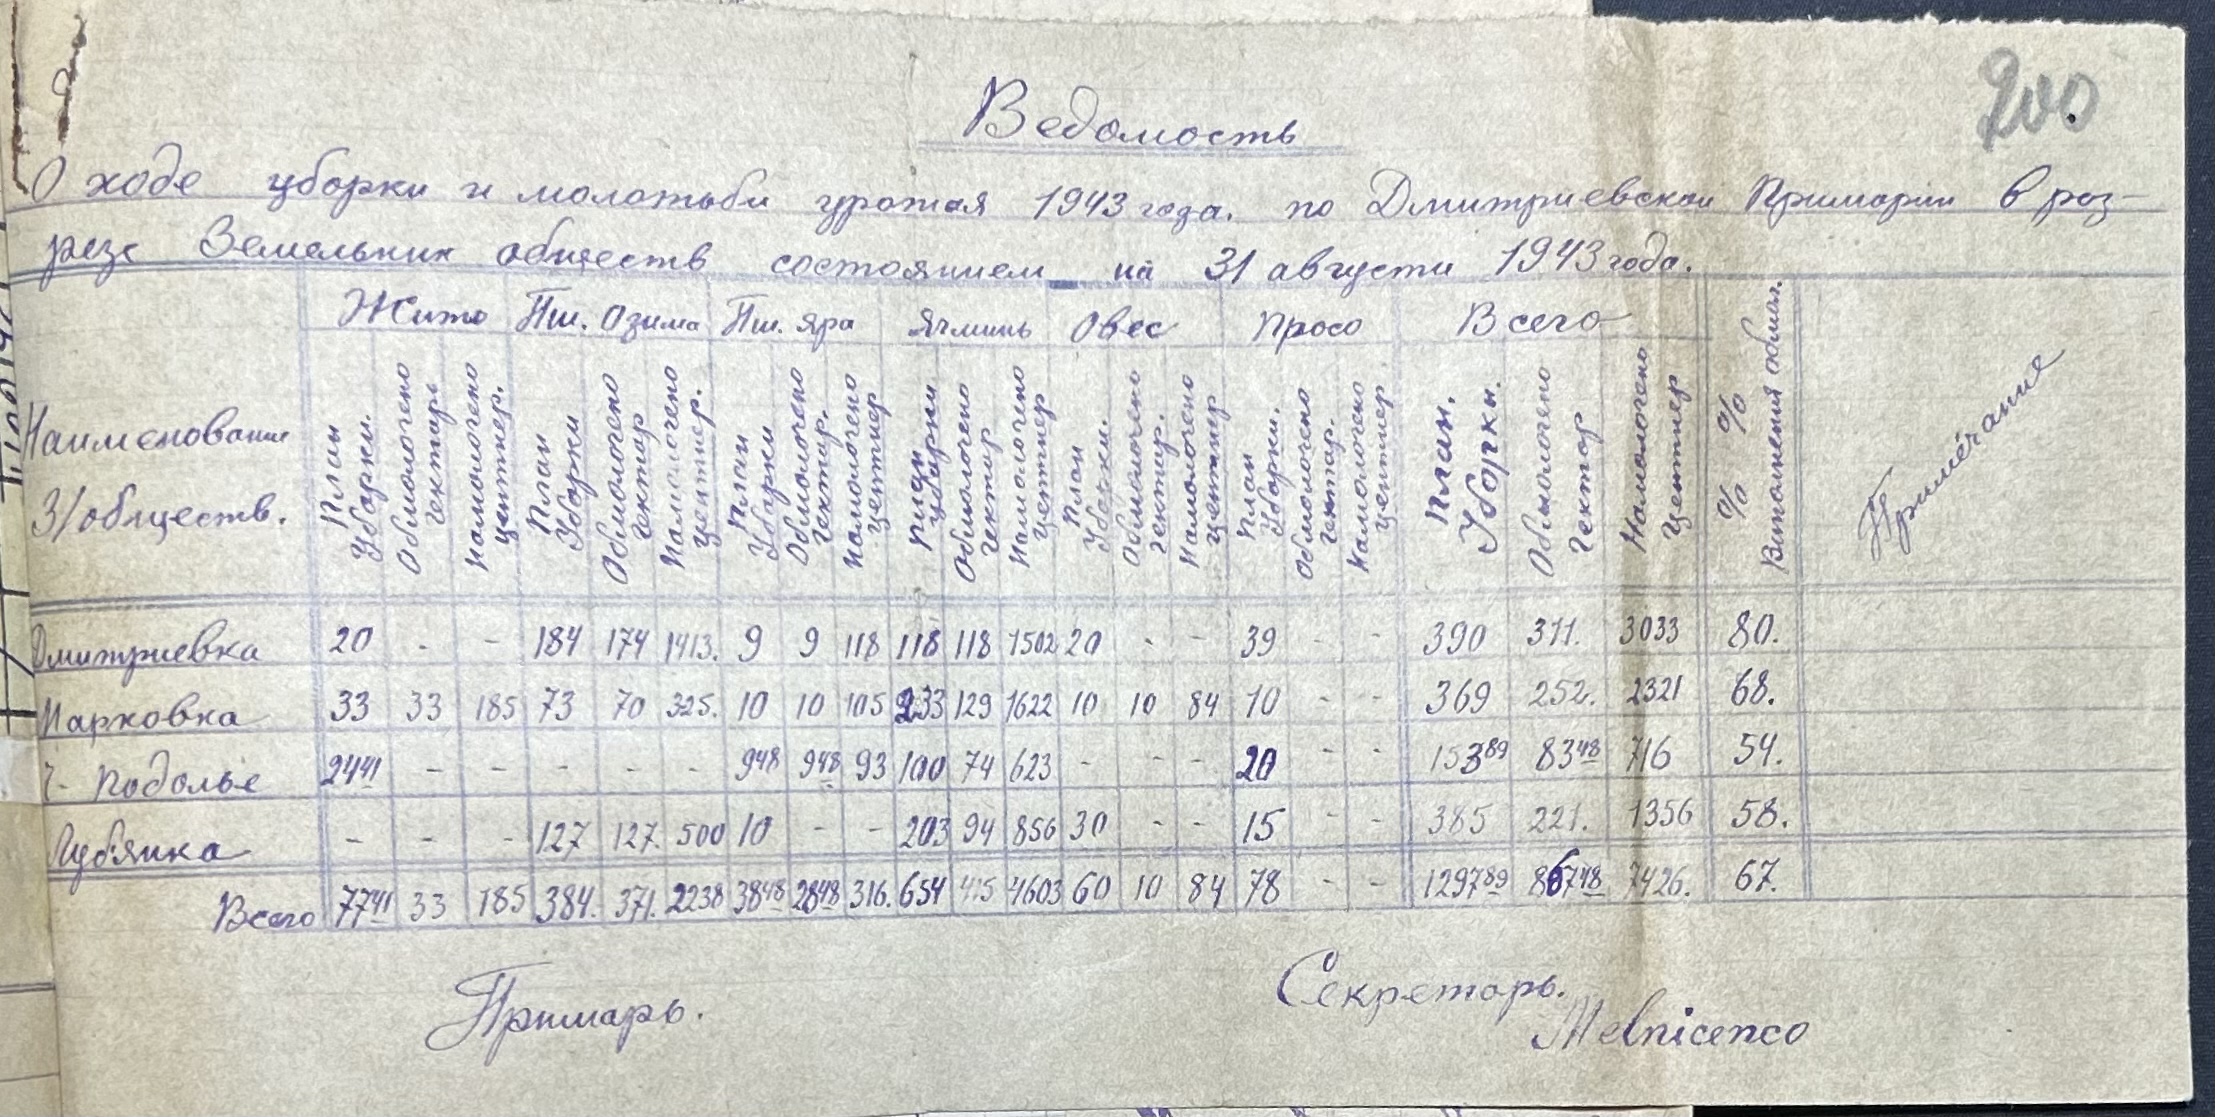 200
Ведомость
О ходе уборки и молотьби урожая 1943 года. по Дмитриевской Примарии в раз-
резе Земельних обществ состоянием на 31 августа 1943 года.
Наименование З/обществ. | Жито | Пш. Озима | Пш. яра | Ячминь | Овес | Просо | Всего | % % Выполнения обмол. | Примечание
План Уборки. | Обмолочено гектар | Намолочено центнер. | План Уборки | Обмолочено гектар | Намолочено центнер. | План Уборки | Обмолочено гектар. | Намолочено центнер | План уборки | Обмолочено гектар | Намолочено центнер | План Уборки. | Обмолочено гектар. | Намолочено центнер | План Уборки. | Обмолочено гектар. | Намолочено центнер | План. Уборки. | Обмолочено гектар | Намолочено центнер
Дмитриевка 20 - - 184 174 1413. 9 9 118 118 118 1502 20 - - 39 - - 390 311. 3033 80.
Марковка 33 33 185 73 70 325. 10 10 105 233 129 1622 10 10 84 10 - - 369 252. 2321 68.
Подолье 24 41 - - - - - 9 48 9 48 93 100 74 623 - - - 20 - - 153 89 83 48 716 54.
Лубянка - - - 127 127. 500 10 - - 203 94 856 30 - - 15 385 221. 1356 58.
Всего 77 41 33 185 384. 371. 2238 38 48 28 48 316. 654 415 4603 60 10 84 78 - - 1297 89 867 48 7426. 67.
Примарь.
Секретарь.
Melnicenco